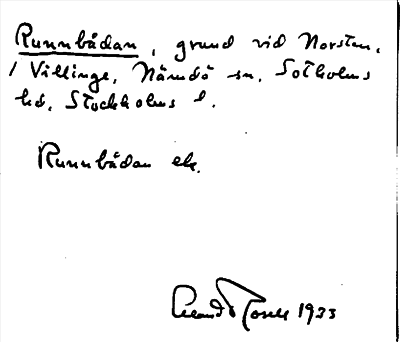 Runnbådan, grund vid Norsten,
/ Villinge, Nämdö sn, Sotholms
hd, Stockholms l.
Runnbådan ek.
1933